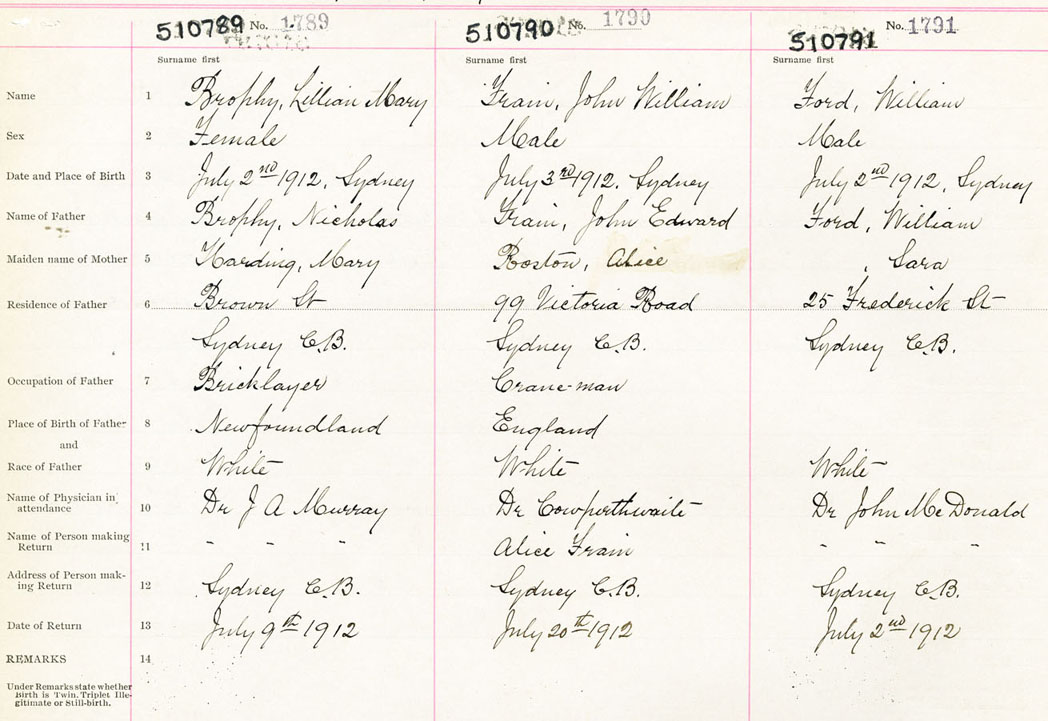 510789 No. 1789 510790 No. 1790 510791 No. 1791
Surname first Surname first Surname first
Name 1 Brophy, Lillian Mary Frain, John William Ford, William
Sex 2 Female Male Male
Date and Place of Birth 3 July 2nd 1912, Sydney July 3rd 1912. Sydney July 2nd 1912, Sydney
Name of Father 4 Brophy, Nicholas Frain, John Edward Ford, William
Maiden name of Mother 5 Harding, Mary Boston, Alice , Sara
Residence of Father 6 Brown St 99 Victoria Road 25 Frederick St
Sydney C.B. Sydney C.B. Sydney C.B.
Occupation of Father 7 Bricklayer Crane-man
Place of Birth of Father 8 Newfoundland England
and
Race of Father 9 White White White
Name of Physician in
attendance 10 Dr J A Murray Dr Cowperthwaite Dr John McDonald
Name of Person making
Return 11 - - - Alice Frain - - -
Address of Person mak-
ing Return 12 Sydney C.B. Sydney C.B. Sydney C.B.
Date of Return 13 July 9th 1912 July 20th 1912 July 2nd 1912
REMARKS 14
Under Remarks state whether
Birth is Twin, Triplet, Ille-
gitimate or Still-birth.